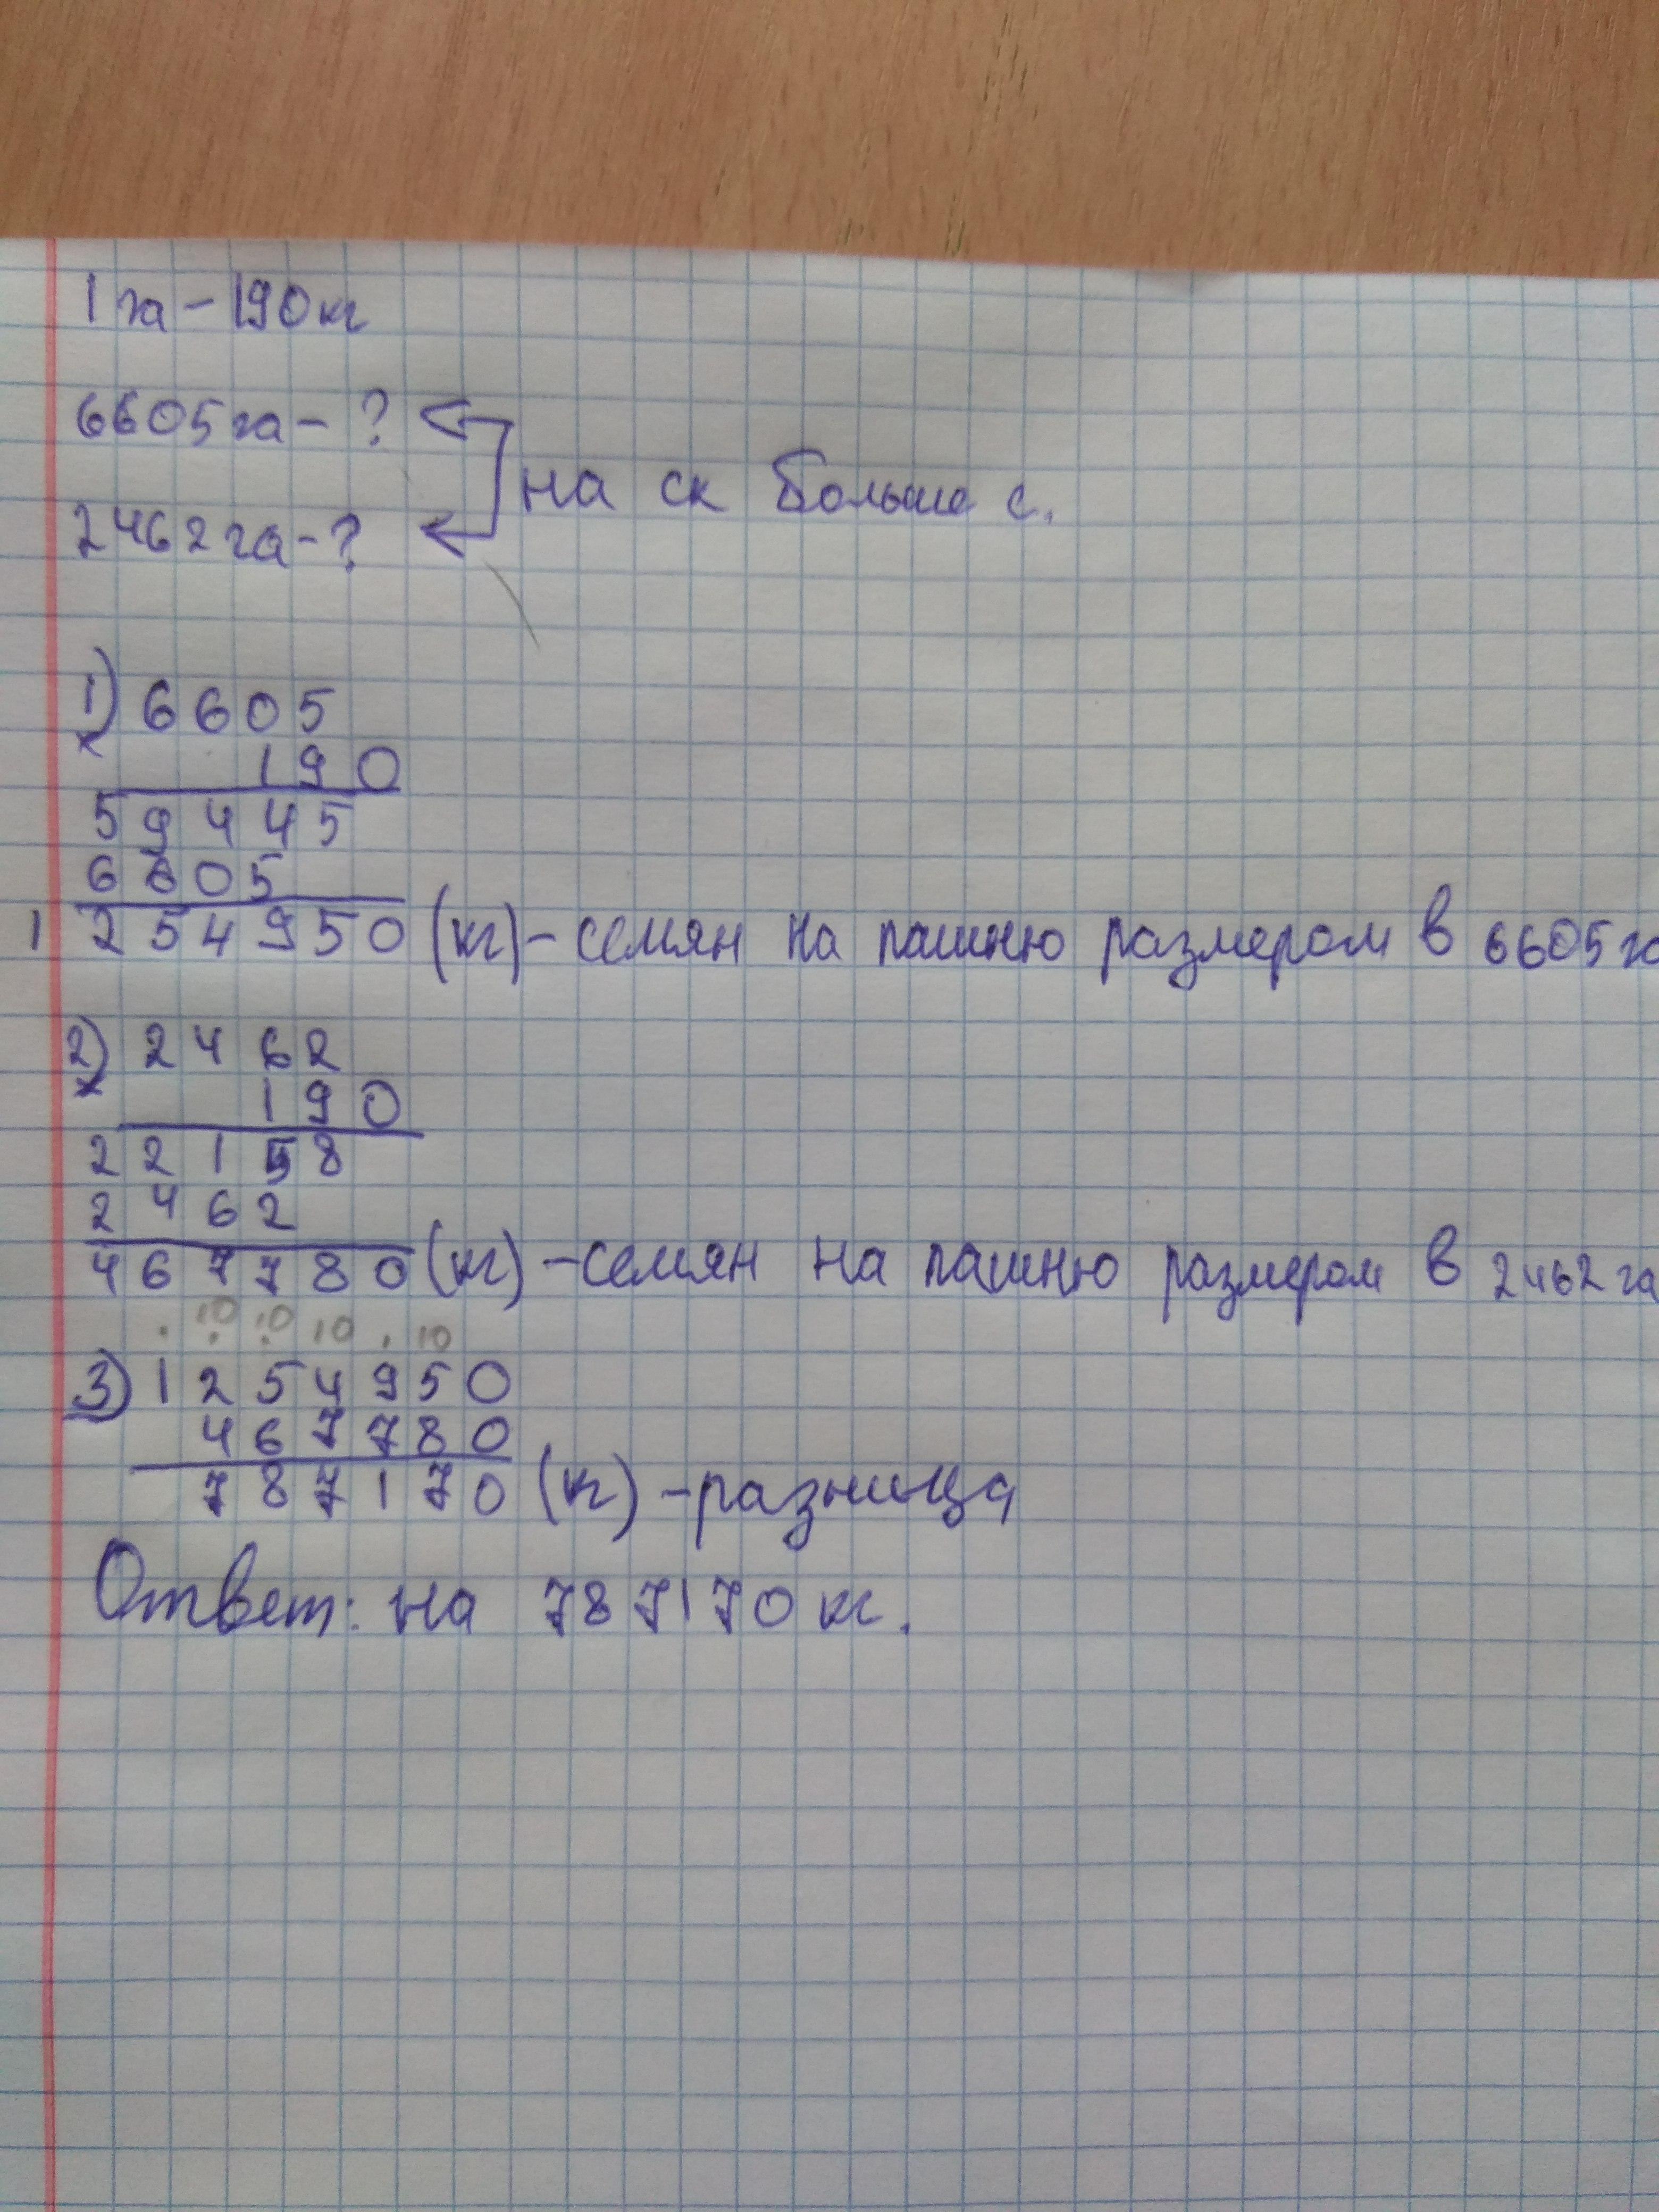 1 га - 190 кг
6605 га - ?
на ск больше с.
2462 га - ?
1) 6605
x 190
59445
6605
1254950 (кг) - семян на пашню размером в 6605 га
2) 2462
x 190
22158
2462
467780 (кг) - семян на пашню размером в 2462 га
. 10 10 10 . 10
3) 1254950
467780
787170 (кг) - разница
Ответ: на 787170 кг.